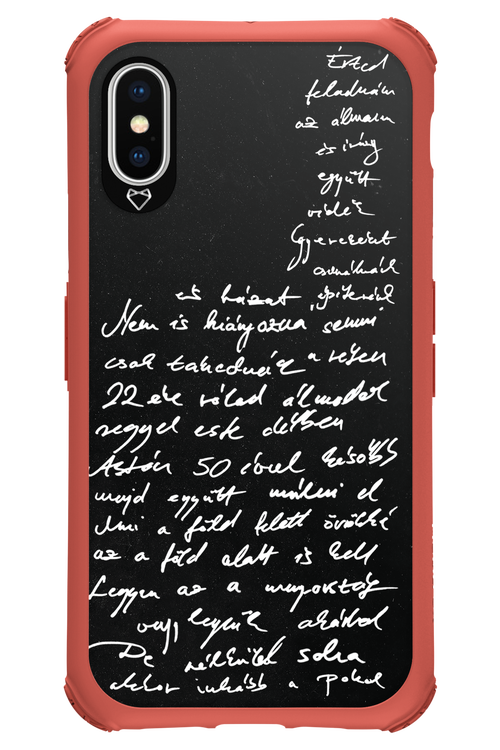 Érted
feladnám
az álmaim
és irány
együtt
vidék
Gyerekeket
csinálnánk
és házat építenénk
Nem is hiányozna semmi
csak takednék a részem
22 éve rólad álmodok
reggel este délben
Aztán 50 évvel később
majd együtt múlni el
Ami a föld felett örökké
az a föld alatt is kell
Legyen az a mennyország
vagy legyünk akárhol
De nélküled soha
akkor inkább a pokol